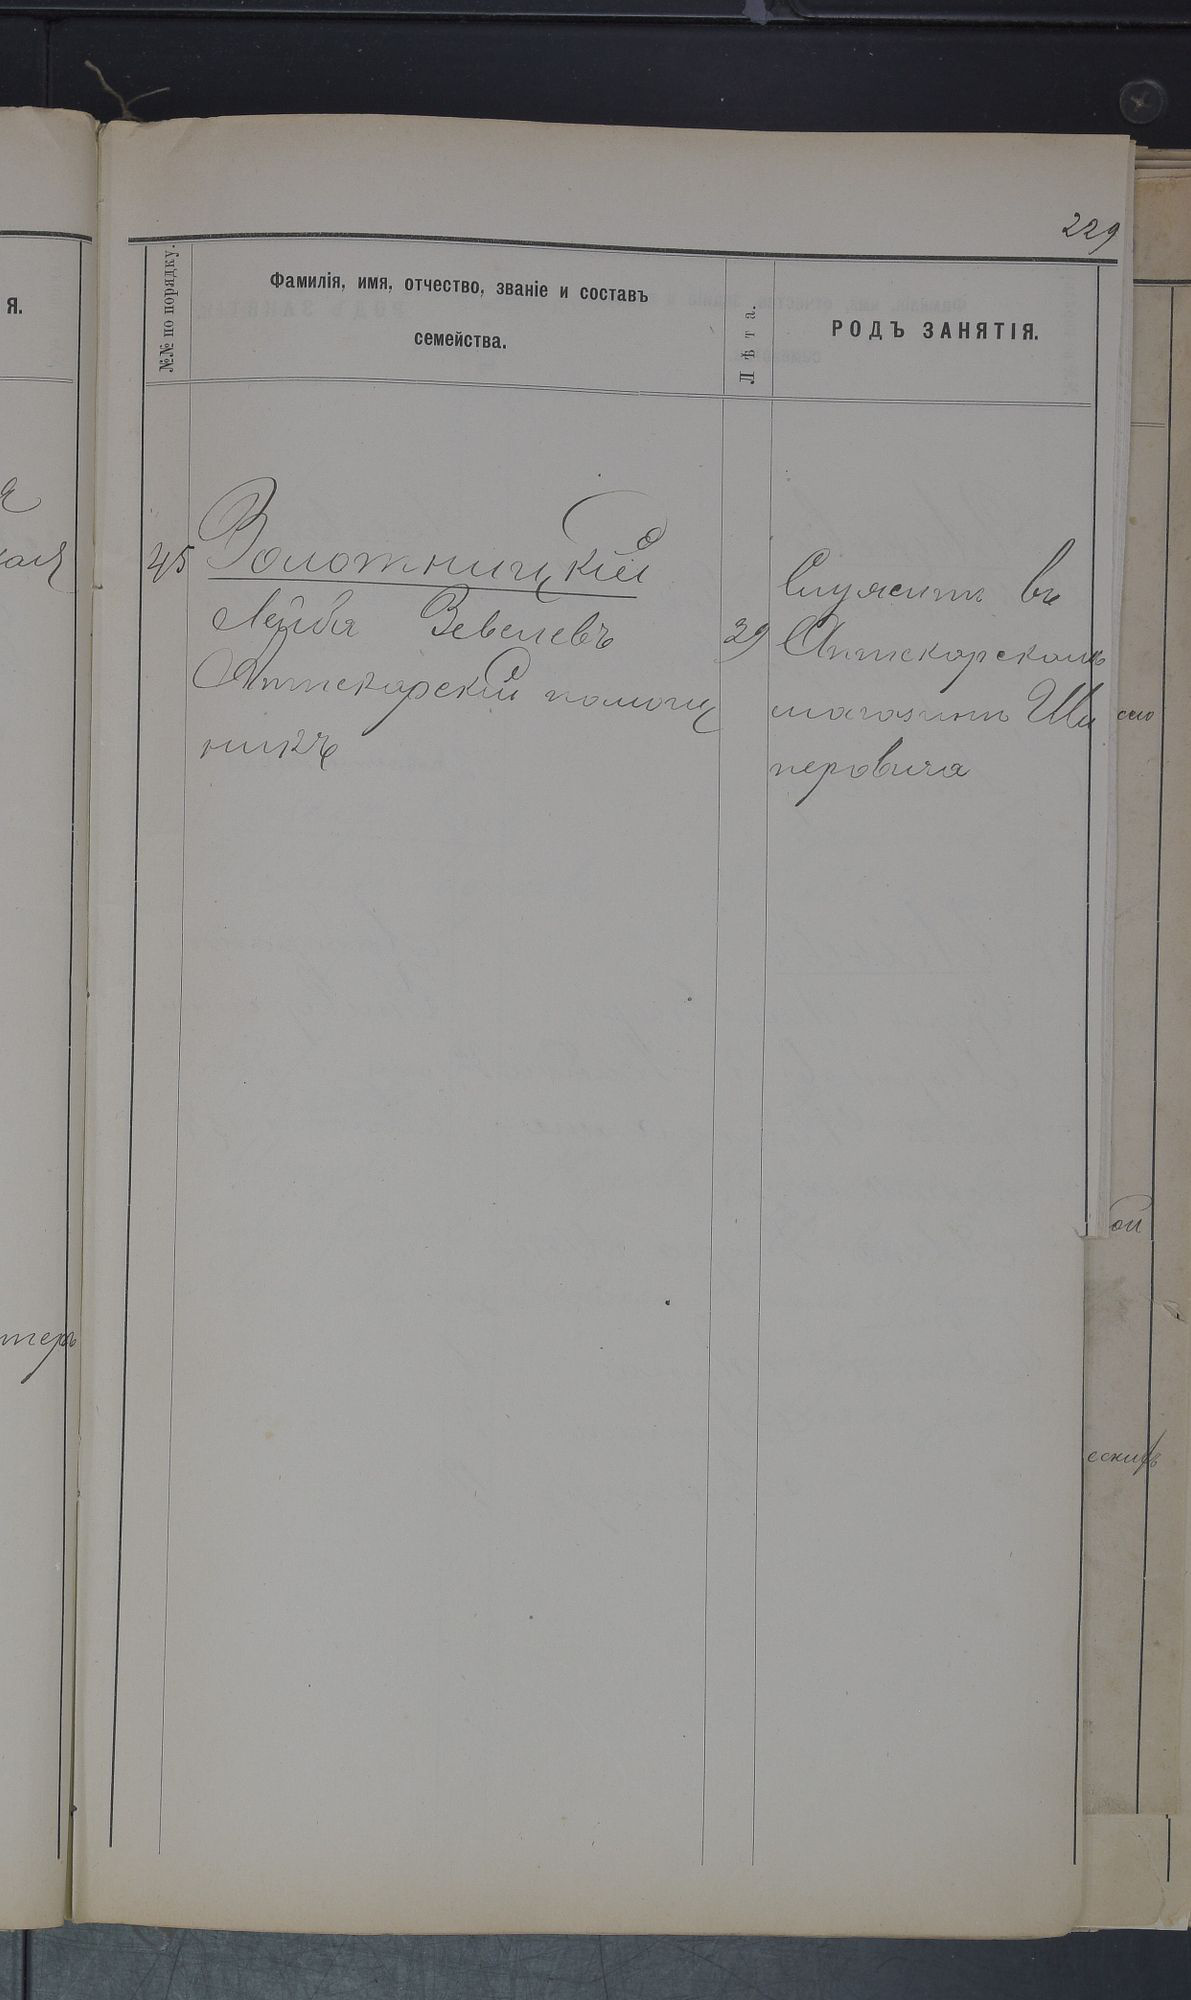 229
№№ по порядку.
Фамилія, имя, отчество, званіе и составъ
семейства.
Лѣта.
РОДЪ ЗАНЯТІЯ.
я.
45 Золотницкій
Лейба Зевелевъ 39
Аптекарскій помощ
никъ
Служитъ въ
Аптекарскомъ
магазинѣ Ша
перовича
теръ